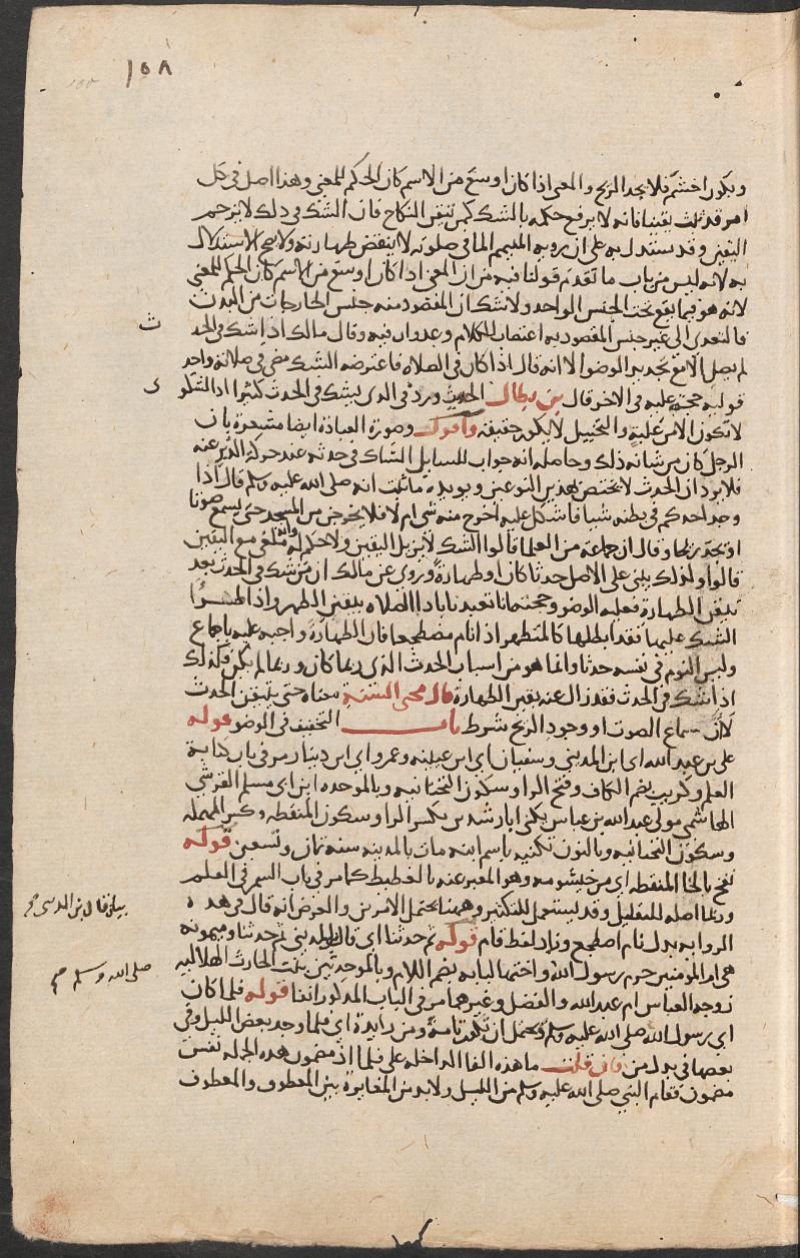 ١٥٨
ويكون اخشم فلا يجد الريح والمعنى اذا كان اوسع من الاسم كان الحكم للمعنى وهذا اصل في كل
امر قد ثبت يقينا فانه لا يرفع حكمه بالشك كمن تيقن النكاح فان الشك في ذلك لا يزحم
اليقين وقد يستدل به على ان رويه المتيمم الما في صلوته لا ينقض طهارته ولا يصح الاستدلال
به لانه ليس من باب ما تقدم قولنا فيه من ان المعنى اذا كان اوسع من الاسم كان الحكم للمعنى
لانه هو فيما يقع تحت الجنس الواحد ولا شك ان المقصود منه جنس الخارجات من البدن
فالتعدي الى غير جنس المقصود به اغتصاب للكلام وعدوان فيه وقال مالك اذا شك في الحدث
لم يصل الا مع تجديد الوضوا الا انه قال اذا كان في الصلاه فاعترضه الشك مضى في صلاته واحد
قوليه حجة عليه في الاخر قال بن بطال الحديث ورد في الذي يشك في الحدث كثيرا اذ الشكوى
لا تكون الا من علية والتخييل لا يكون حقيقه واقول وصورة العبادة ايضا مشعرة بان
الرجل كان من شانه ذلك وحاصله انه جواب للسايل الشاك في حدثه عند حركة الدبر عنه
فلا يرد ان الحدث لا يختص بهذين النوعين ويويده ما ثبت انه صلى الله عليه وسلم قال اذا
وجد احدكم في بطنه شيا فاشكل عليه اخرج منه شي ام لا فلا يخرجن من المسجد حتى يسمع صوتا
او يجد ريحا وقال ان جماعة من العلما قالوا الشك لا يزيل اليقين ولا حكم له وانه ملغى مع اليقين
قالوا ولذلك يبنى على الاصل حدثا كان او طهارة وروي عن مالك ان من شك في الحدث بعد
تيقن الطهارة فعليه الوضو وحجته انا تعبدنا باداء الصلاه بيقين الطهر واذا طرا
الشك عليها فقد ابطلها كالمتطهر اذا نام مضطجعا فان الطهارة واجبه عليه باجماع
وليس النوم في نفسه حدثا وانما هو من اسباب الحدث الذي ربما كان وربما لم يكن فكذلك
اذا شك في الحدث فقد زال عنه يقين الطهارة قال محيي السنة معناه حتى يتيقن الحدث
لا ان سماع الصوت او وجود الريح شرط باب التخفيف في الوضو قوله
علي بن عبد الله اي ابن المديني وسفيان اي ابن عيينه وعمرو اي ابن دينار مر في باب كتابة
العلم وكريب بضم الكاف وفتح الرا وسكون التحتانيه وبالموحده ابن ابي مسلم القرشي
الهاشمي مولى عبد الله بن عباس يكنى ابا رشدين بكسر الرا وسكون المنقطه وكسر المهمله
وسكون التحتانيه وبالنون تكنيه باسم ابنه مات بالمدينه سنه ثمان وتسعين قوله
نفخ بالخا المنقطه اي من خيشومه وهو المعبر عنه بالغطيط كما مر في باب السمر في العلم
وربما اصله للتقليل وقد يستعمل للتكثير وههنا يحتمل الامرين والغرض انه قال في هذه
الروايه بدل نام اضطجع وزاد لفظ قام قوله ثم حدثنا اي قال المديني ثم حدثنا وميمونه
هي ام المومنين حرم رسول الله واختها لبابه بضم اللام وبالموحدتين بنت الحارث الهلاليه
زوجة العباس ام عبد الله والفضل وغيرهما مر في الباب المذكور انفا قوله فلما كان
اي رسول الله صلى الله عليه وسلم ويحتمل ان تكون تامة ومن زايدة اي فلما وجد بعض الليل وفي
بعضها في بدل من فان قلت ما هذه الفا الداخله على فلما اذ مضمون هذه الجمله نفس
مضمون فقام النبي صلى الله عليه وسلم من الليل ولا بد من المغايرة بين المعطوف والمعطوف
صلى الله وسلم